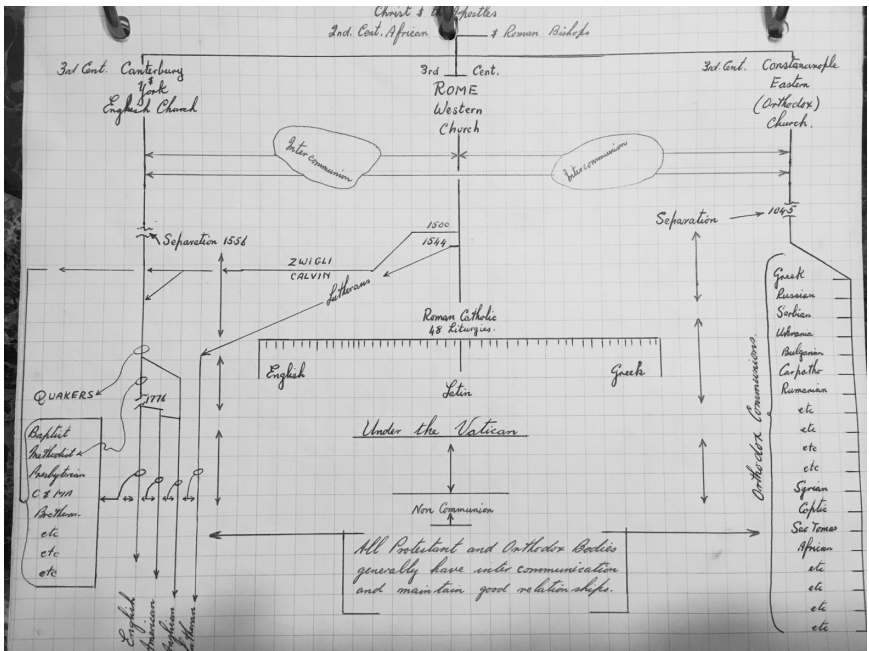 Christ & the Apostles
2nd. Cent. African
& Roman Bishops
3rd Cent. Canterbury
&
York
English Church
3rd Cent.
ROME
Western
Church
3rd. Cent. Constananople
Eastern
(Orthodox)
Church.
Inter communion
Inter communion
Separation 1556
1500
1544
ZWIGLI
CALVIN
Lutherans
Separation
1045
Roman Catholic
48 Liturgies.
English
Latin
Greek
Under the Vatican
Non Communion
All Protestant and Orthodox Bodies
generally have inter communication
and maintain good relationships.
QUAKERS
1776
Baptist
Methodist
Presbyterian
C & MA
Brethern.
etc
etc
etc
English
American
Lutheran
Orthodox Communions.
Greek
Russian
Serbian
Ukrania
Bulganian
Carpatho
Rumanian
etc
etc
etc
etc
Syrian
Coptic
Sao Tomas
African
etc
etc
etc
etc